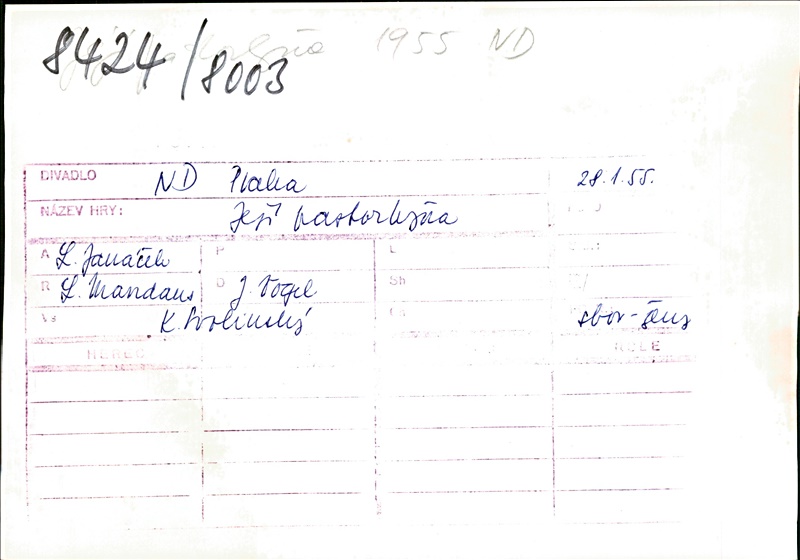 Její pastorkyňa 1955 ND
8424/8003
DIVADLO ND Praha 28.1.55.
NÁZEV HRY: Její pastorkyňa
A L. Janáček P L
R L. Mandaus D J. Vogel Sh
Vs K. Svolinský sbor-ženy
HEREC ROLE